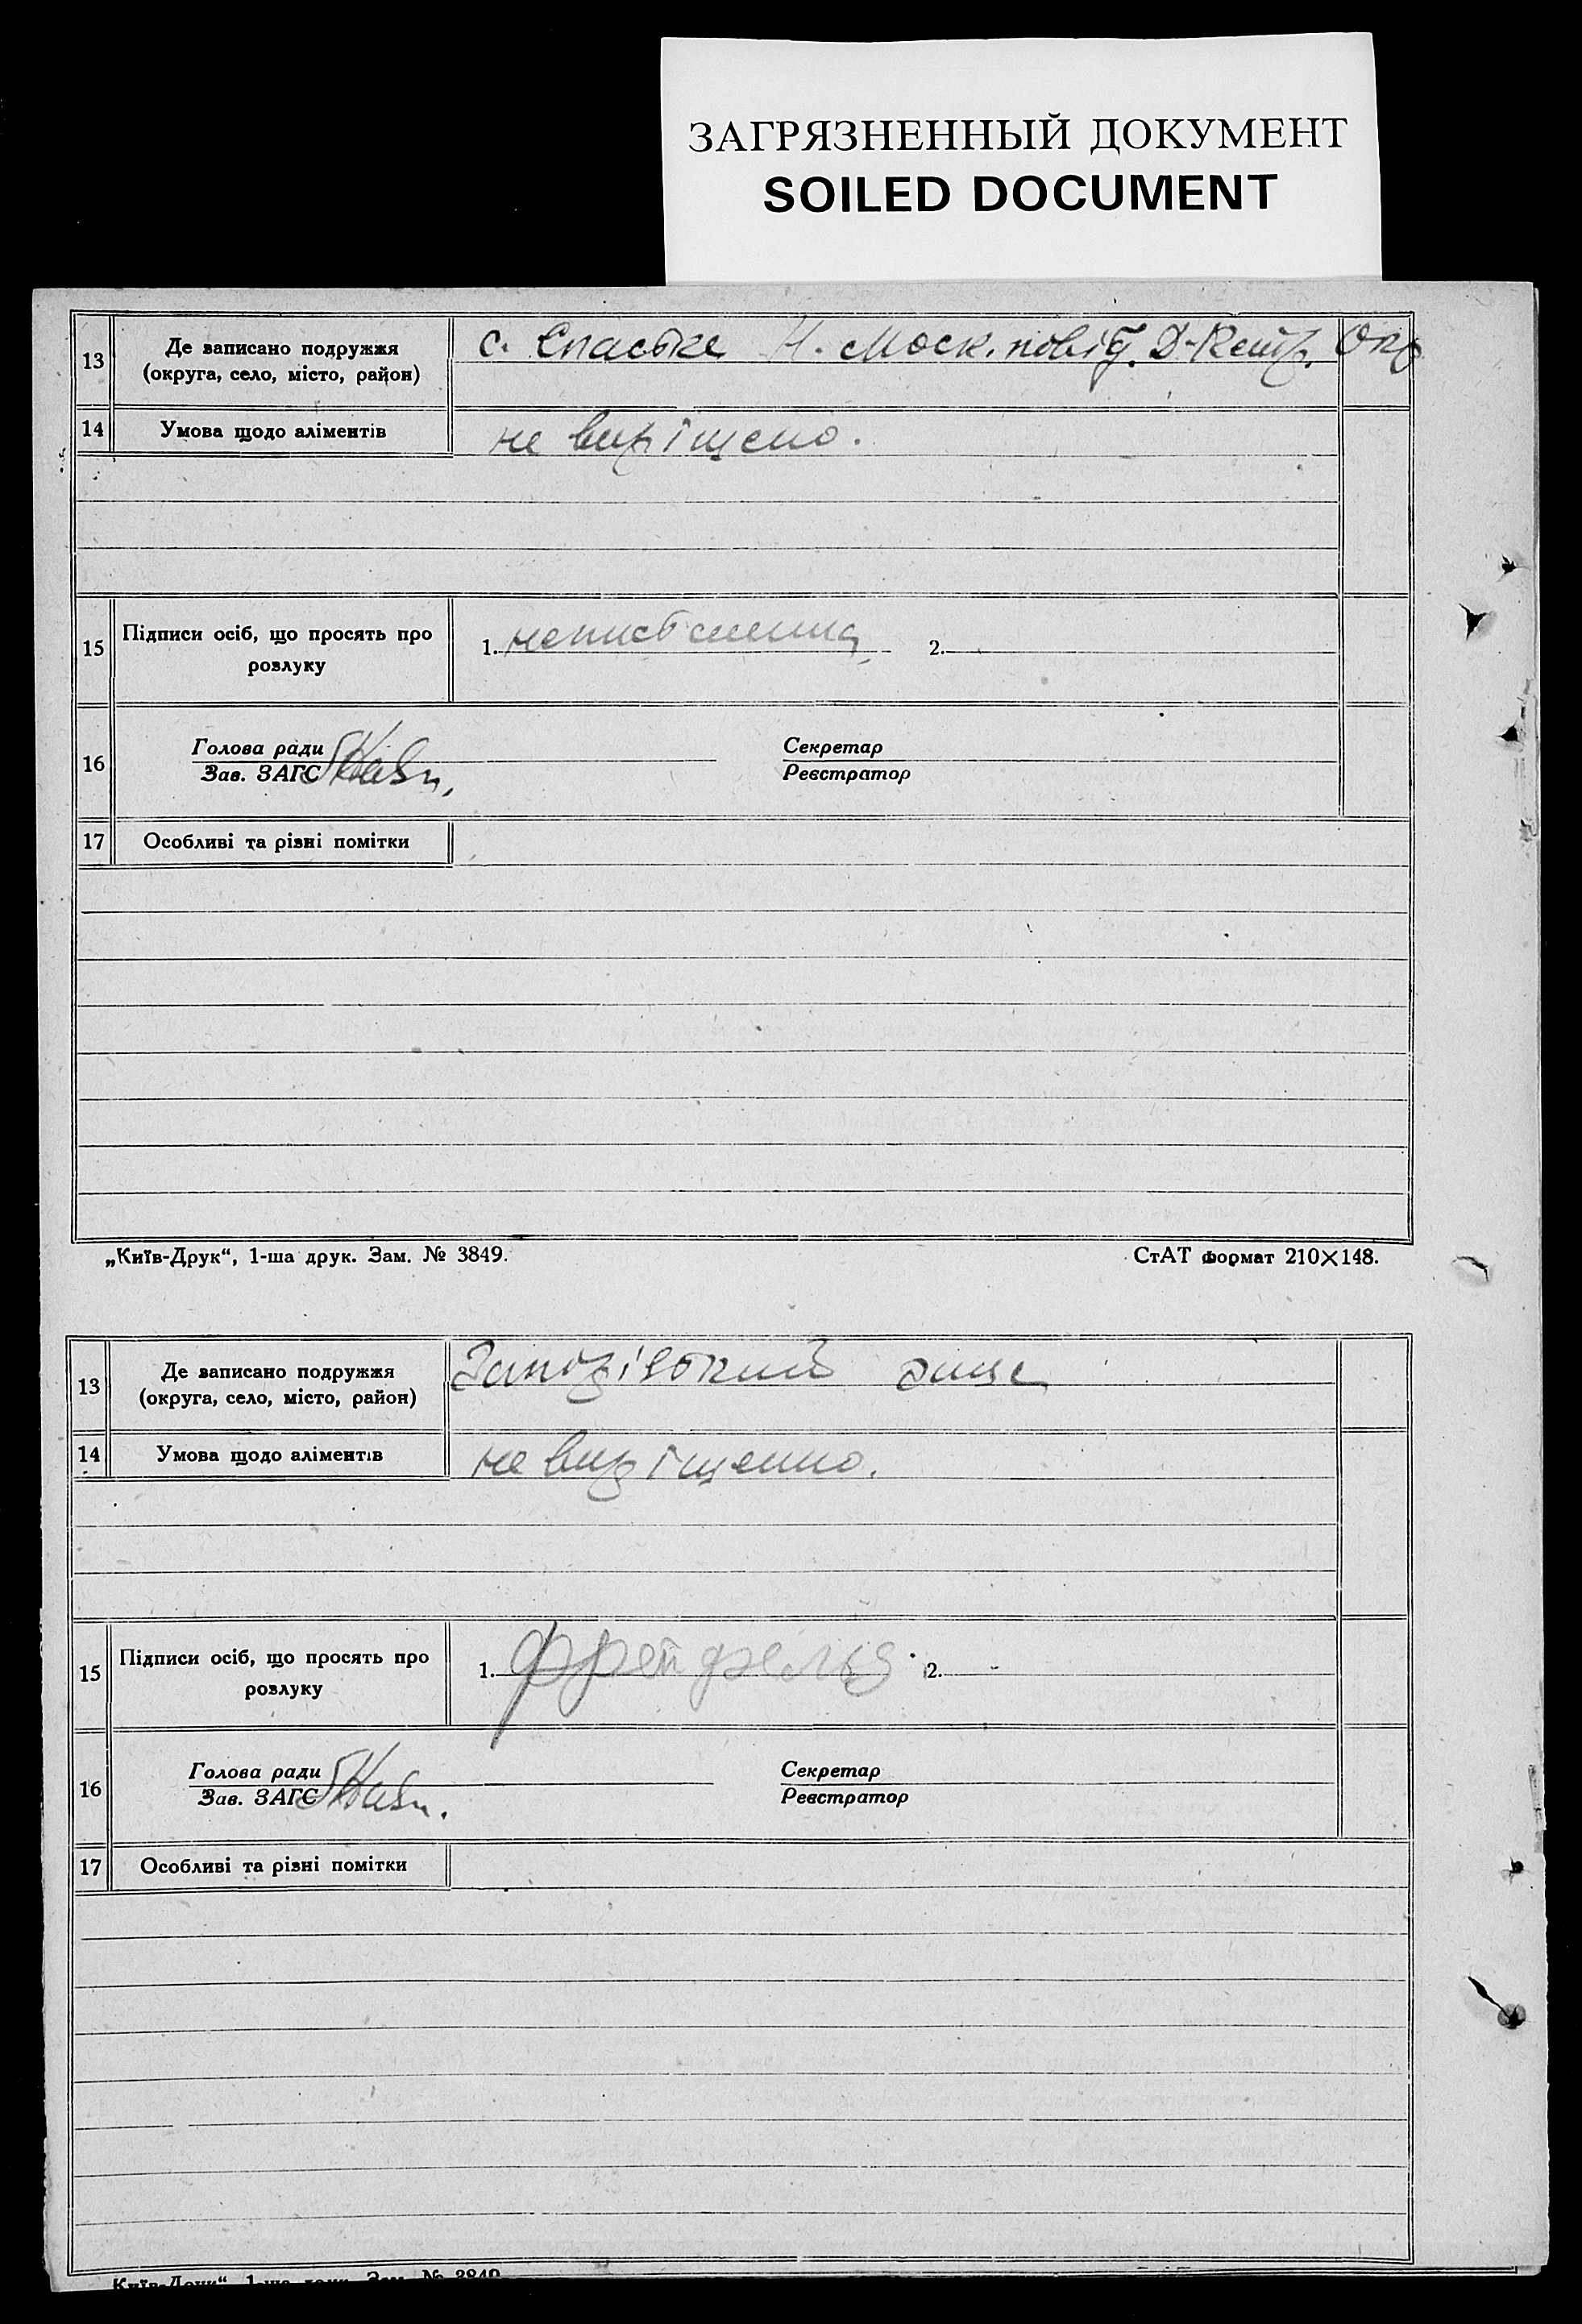 ЗАГРЯЗНЕННЫЙ ДОКУМЕНТ
SOILED DOCUMENT
13 Де записано подружжя (округа, село, місто, район) с. Спаське Н. Моск. повід.
14 Умова щодо аліментів не вирішено.
15 Підписи осіб, що просять про розлуку 1. неписьменна 2.
16 Голова ради Секретар
Зав. ЗАГС Реєстратор
17 Особливі та різні помітки
„Київ-Друк“, 1-ша друк. Зам. № 3849. СтАТ формат 210×148.
13 Де записано подружжя (округа, село, місто, район)
14 Умова щодо аліментів не вирішенно.
15 Підписи осіб, що просять про розлуку 1. 2.
16 Голова ради Секретар
Зав. ЗАГС Реєстратор
17 Особливі та різні помітки
Київ-Друк“, 1-ша друк. Зам. № 3849